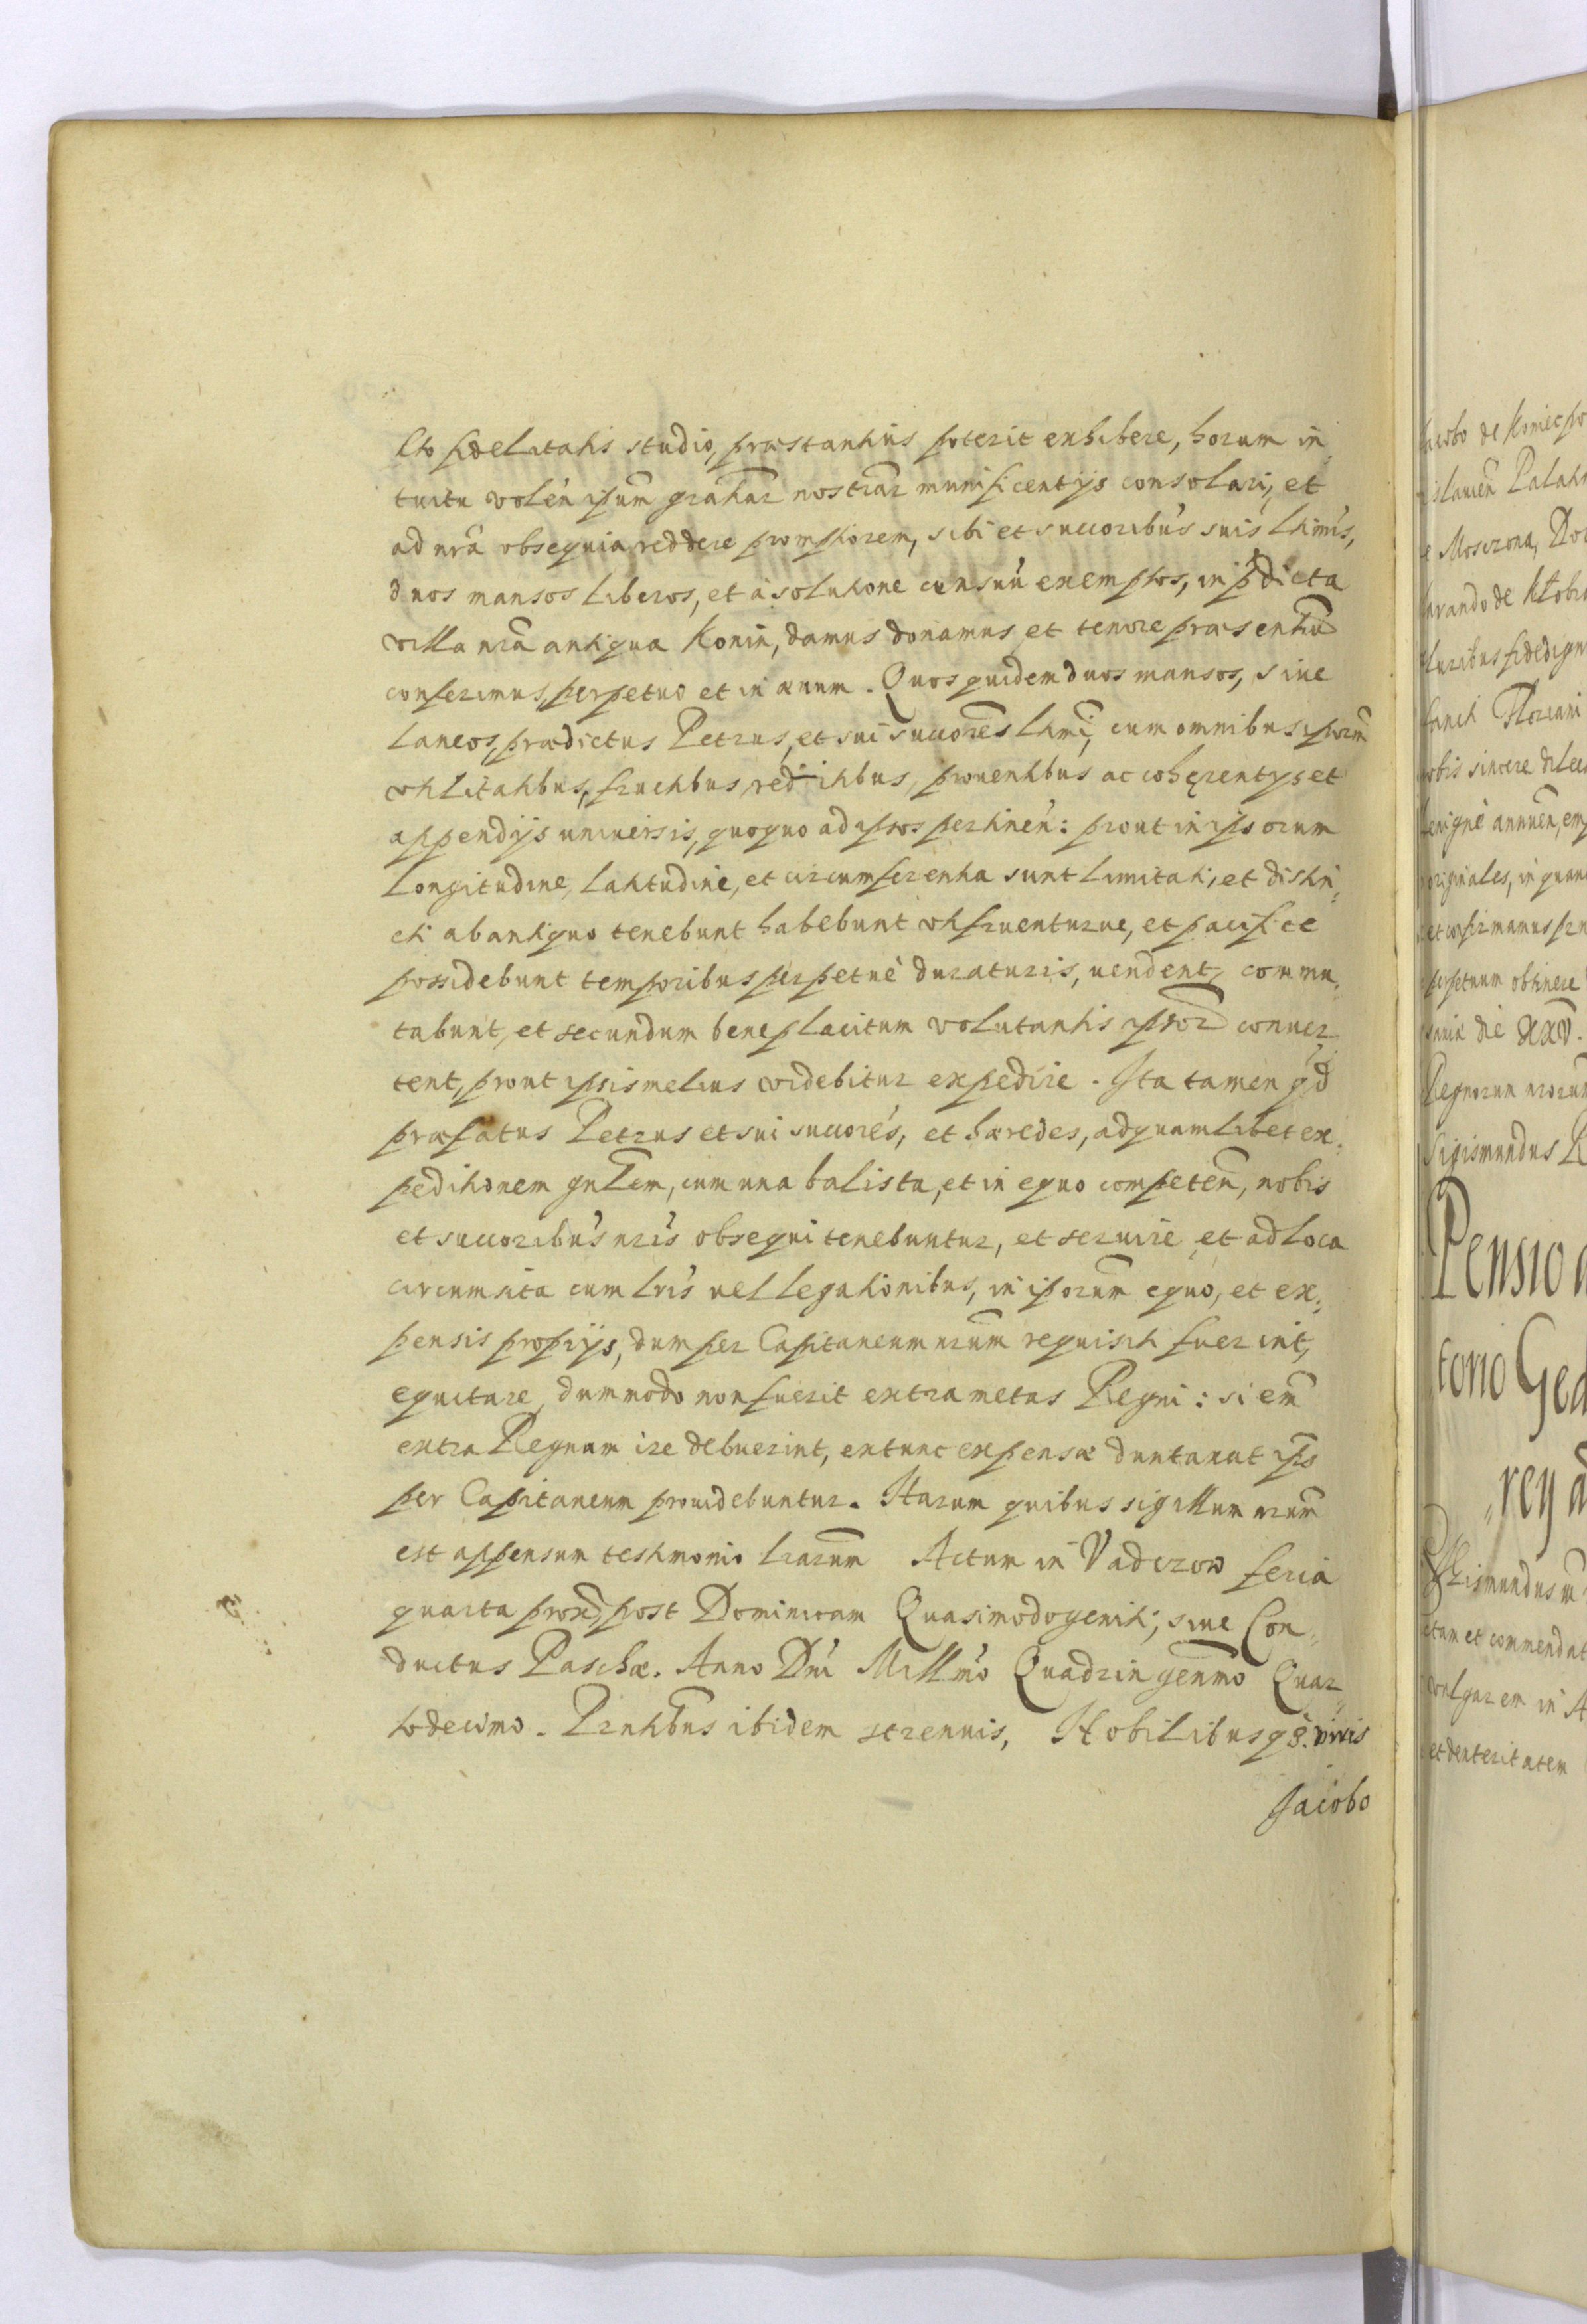 cto fidelitatis studio, præstantius poterit exhibere, horum in„
tuitu volen̄ ipsum gratiar̄ nostrar̄ munificentijs consolari, et
ad nr̄a obsequia reddere promptiorem, sibi et succoribus suis ltimis,
duos mansos liberos, et à solutione censuū exemptos, in p̄dicta
villa nr̄a antiqua Konin, damus donamus et tenore præsentiū
conferimus, perpetuo et in æuum. Quos quidem duos mansos, siue
laneos, prædictus Petrus, et sui succores ltimi, cum omnibus ipsorum̄
vtilitatibus, fructibus, redditibus, prouentibus ac cohęrentijs et
appendijs uniuersis, quoquo ad ipsos pertinen̄: prout in ipsorum
longitudine, latitudine, et circumferentia sunt limitati, et distin„
cti ab antiquo tenebunt habebunt vtifruenturue, et pacifice
possidebunt temporibus perpetuè duraturis, uendent, commu„
tabunt, et secundum beneplacitum volutantis ipsor̄ conuer„
tent, prout ipsis melius videbitur expedire. Ita tamen qd̄
præfatus Petrus et sui succores, et hæredes, ad quamlibet ex„
peditionem gnlem, cum una balista, et in equo competen̄, nobis
et succoribus nris obsequi tenebuntur, et seruire et ad loca
circumsita cum lris uel legationibus, in ipsorum equo, et ex„
pensis proprijs, dum per Capitaneum nrum requisiti fuerint,
equitare, dummodo non fuerit extra metas Regni: si em̄
extra Regnum ire debuerint, extunc expensæ duntaxat ips
per Capitaneum prouidebuntur. Harum quibus sigillum nrum̄
est appensum testimonio lrarum Actum in Vadczow feria
quarta prox̄ post Dominicam Quasimodogeniti, siue Con„
ductus Paschæ. Anno Dni Millmo Quadringenmo Quar„
todecimo. Pr̄ntibus ibidem strenuis, Nobilibusq3. viris
Jacobo
Jacobo de Koniecpo
Palati
e Mosczona, Do
de Klobu
pluribus fidedign
sancti Floriani
nobis sincere dilec
benignè annuen̄,
originales, in quan
et confirmamus
perpetuum obtinere
die XXV.
Regnorum nrorum
Sigismundus R
Pensio a
torio Ged
„rey a
Sigismundus
et commendat
vulgarem in A
et dexteritatem